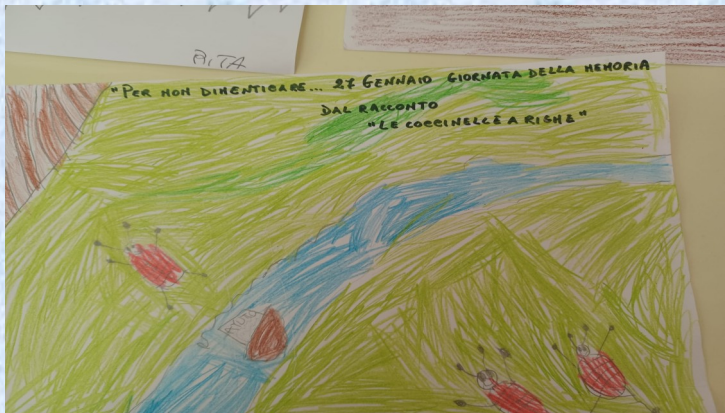 RITA
"PER NON DIMENTICARE... 27 GENNAIO GIORNATA DELLA MEMORIA
DAL RACCONTO
"LE COCCINELLE A RIGHE"